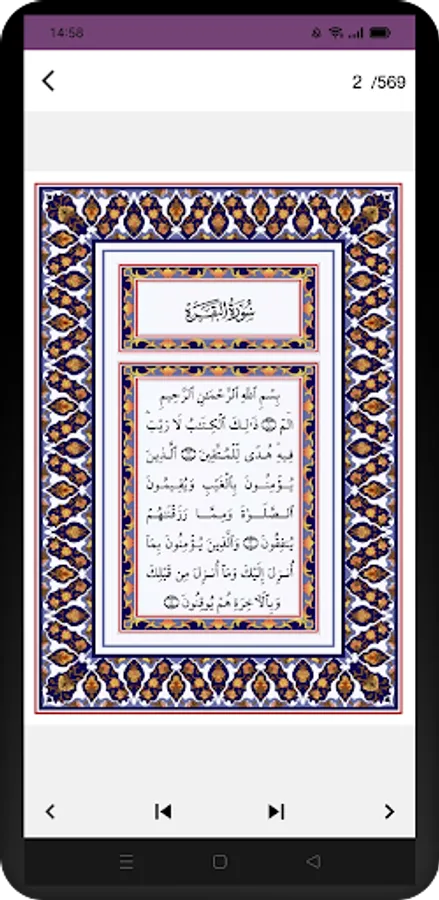 14:58
2 /569
سُورَةُ الْبَقَرَةِ
بِسْمِ ٱللَّهِ ٱلرَّحْمَٰنِ ٱلرَّحِيمِ
الٓمٓ ۝ ذَٰلِكَ ٱلْكِتَٰبُ لَا رَيْبَ ۛ
فِيهِ ۛ هُدًى لِّلْمُتَّقِينَ ۝ ٱلَّذِينَ
يُؤْمِنُونَ بِٱلْغَيْبِ وَيُقِيمُونَ
ٱلصَّلَوٰةَ وَمِمَّا رَزَقْنَٰهُمْ
يُنفِقُونَ ۝ وَٱلَّذِينَ يُؤْمِنُونَ بِمَآ
أُنزِلَ إِلَيْكَ وَمَآ أُنزِلَ مِن قَبْلِكَ
وَبِٱلْءَاخِرَةِ هُمْ يُوقِنُونَ ۝